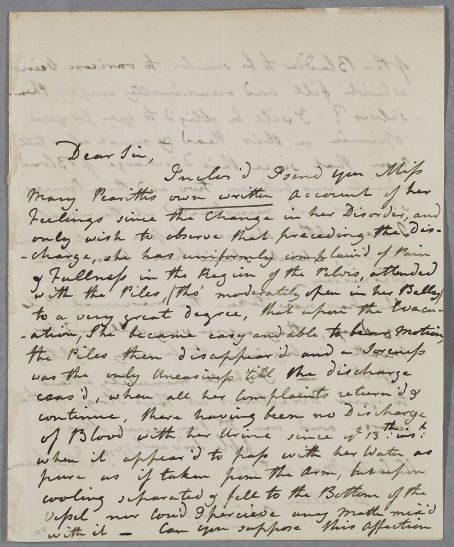 Dear Sir,
Inclos'd I send you Miss
Mary Peariths own written Account of her
Feelings since the Change in her Disorder, and
only wish to observe that preceding the Dis-
-charge, she has uniformly complain'd of Pain
& Fullness in the Region of the Pelvis, attended
with the Piles (tho' moderately open in her Belly)
to a very great degree, that upon the Evacu-
-ation, she became easy and able to bear Motion,
the Piles then disappear'd and a Soreness
was the only Uneasiness till the discharge
ceas'd, when all her complaints return'd &
continue, there having been no Discharge
of Blood with her Urine since ye 13th: inst:
when it appear'd to pass with her Water as
pure as if taken from the Arm, but upon
cooling separated & fell to the Bottom of the
Vessel, nor cou'd I perceive any Matter mix'd
with it — Can you suppose this Affection